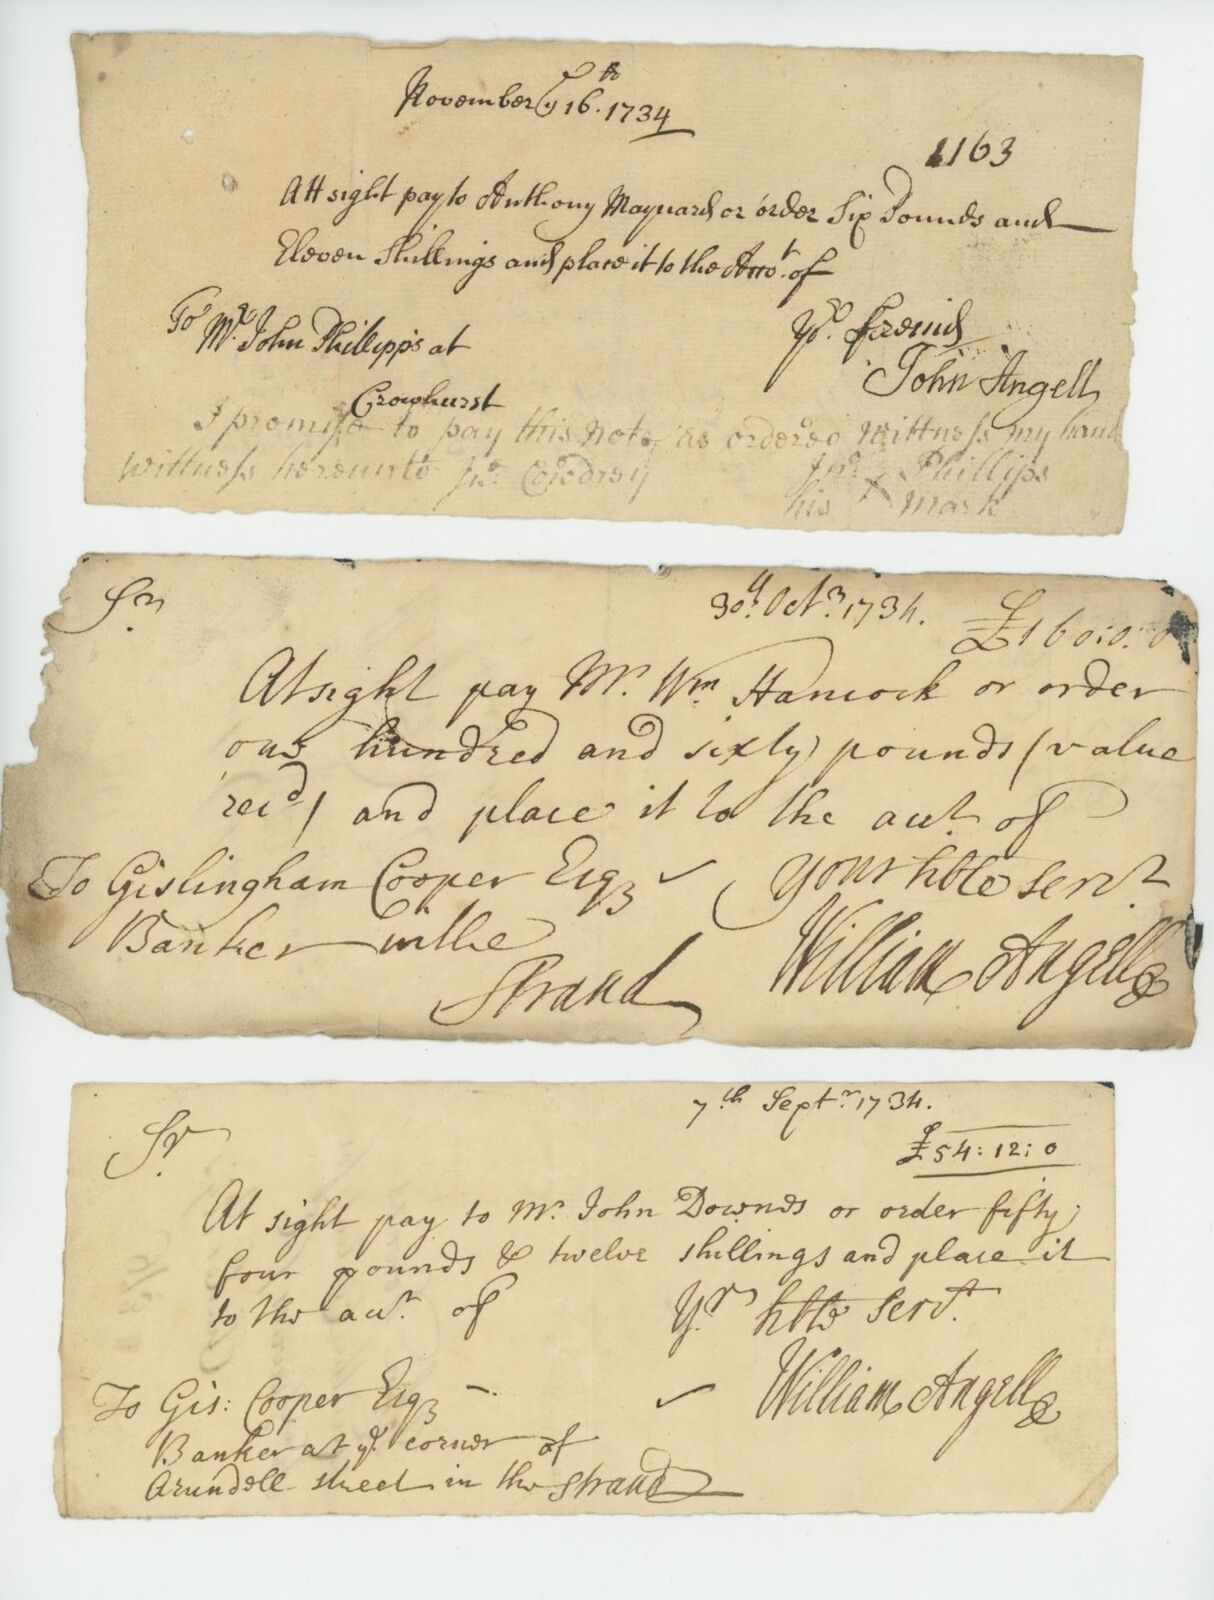 November ye 16th. 1734
1163
Att sight pay to Anthony Maynard or order Six Pounds and
Eleven Shillings and place it to the Acco.t of
Yo.r freind
John Angell
To Mr. John Phillipps at
Crowhurst
I promise to pay this Note as ordered wittness my hand
Wittness hereunto Jno. Cowdrey
Jno. Phillips
his X mark
Sr.
30th. Octr. 1734.
£160:0:0
At sight pay Mr. Wm. Hancock or order
one hundred and sixty pounds (value
recd) and place it to the acct. of
your hble servt.
William Angell
To Gislingham Cooper Esqr
Banker in the
Strand
Sr.
7th Septr. 1734.
£54:12:0
At sight pay to Mr. John Downds or order fifty
four pounds & twelve shillings and place it
to the acct. of
Yr. hble Servt.
William Angell
To Gis: Cooper Esqr
Banker at ye. corner of
Arundell street in the Strand